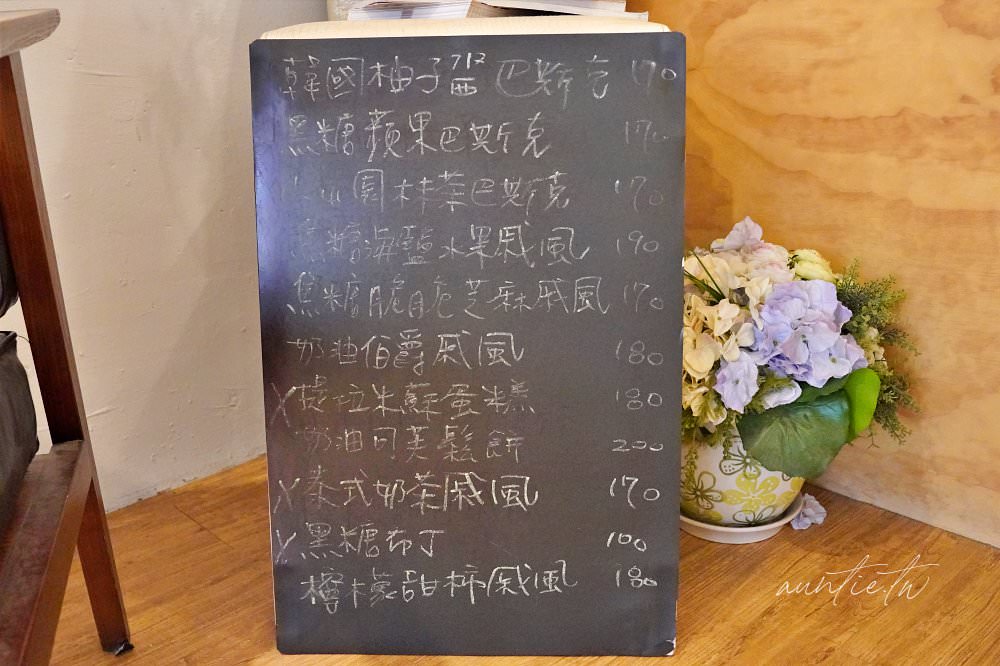 韓國柚子乳酪巴斯克 170
黑糖蘋果巴斯克 170
小山園抹茶巴斯克 170
焦糖海鹽水果戚風 190
焦糖脆脆芝麻戚風 170
奶油伯爵戚風 180
X提拉米蘇蛋糕 180
奶油可芙鬆餅 200
X泰式奶茶戚風 170
X黑糖布丁 100
檸檬甜柿戚風 180
auntie.tw